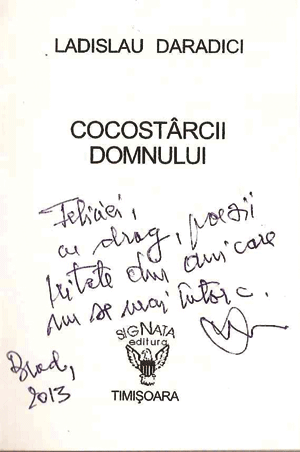 LADISLAU DARADICI
COCOSTÂRCII
DOMNULUI
Feliciei,
cu drag, poezii
iritate din anii care
nu se mai întorc.
SIGNATA
editura
Brad,
2013
TIMIȘOARA